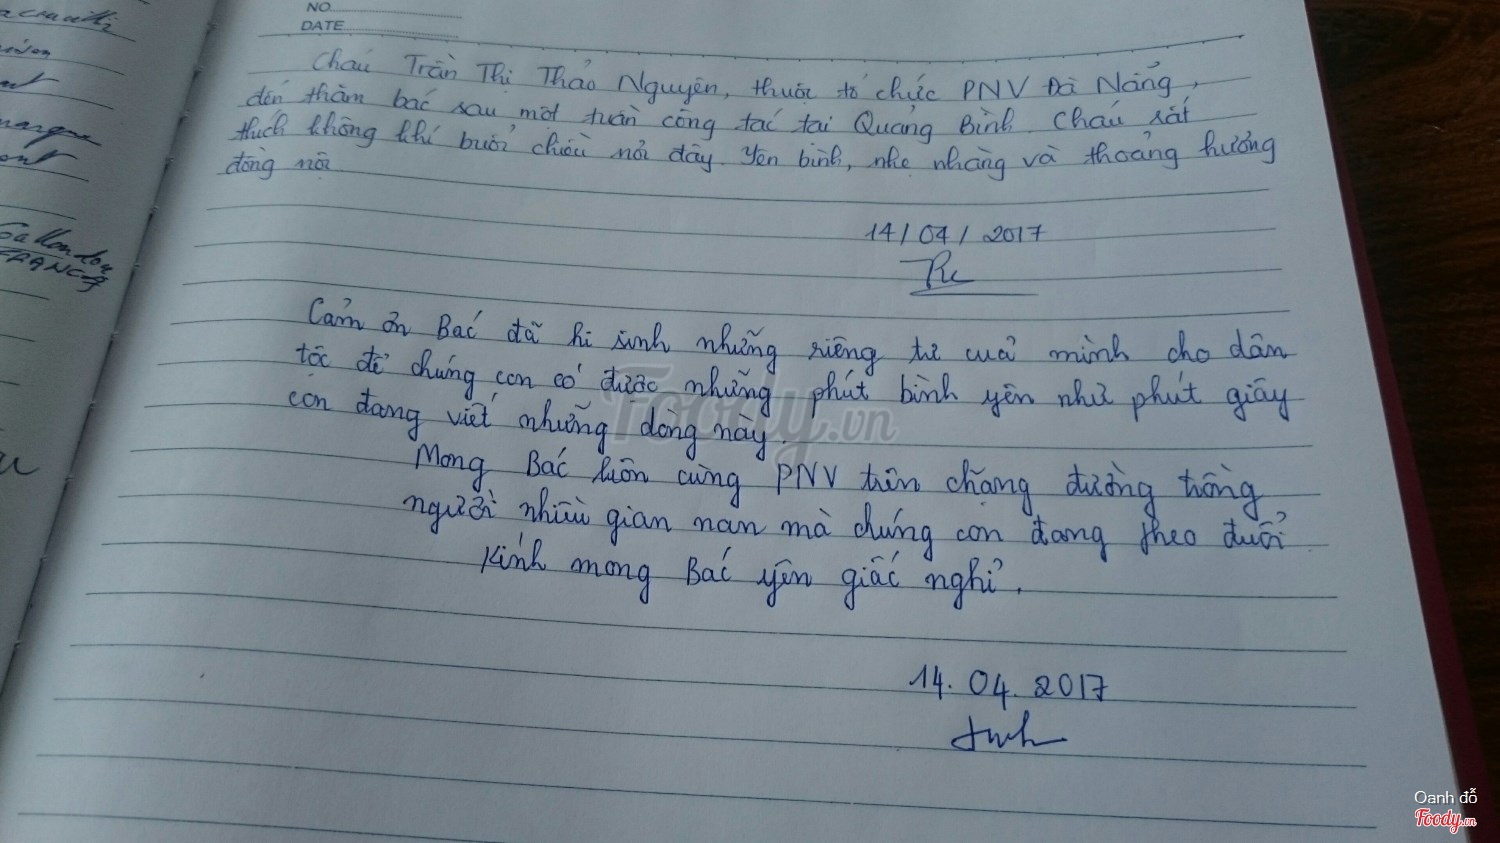 NO
DATE
Cháu Trần Thị Thảo Nguyên, thuộc tổ chức PNV Đà Nẵng,
đến thăm bác sau một tuần công tác tại Quảng Bình. Cháu rất
thích không khí buổi chiều nơi đây. Yên bình, nhẹ nhàng và thoảng hương
đồng nội.
14/04/2017
Cảm ơn Bác đã hi sinh những riêng tư của mình cho dân
tộc để chúng con có được những phút bình yên như phút giây
con đang viết những dòng này.
Mong Bác luôn cùng PNV trên chặng đường trồng
người nhiều gian nan mà chúng con đang theo đuổi
Kính mong Bác yên giấc nghỉ.
14.04.2017
FRANCE
Foody.vn
Oanh đỗ
Foody.vn